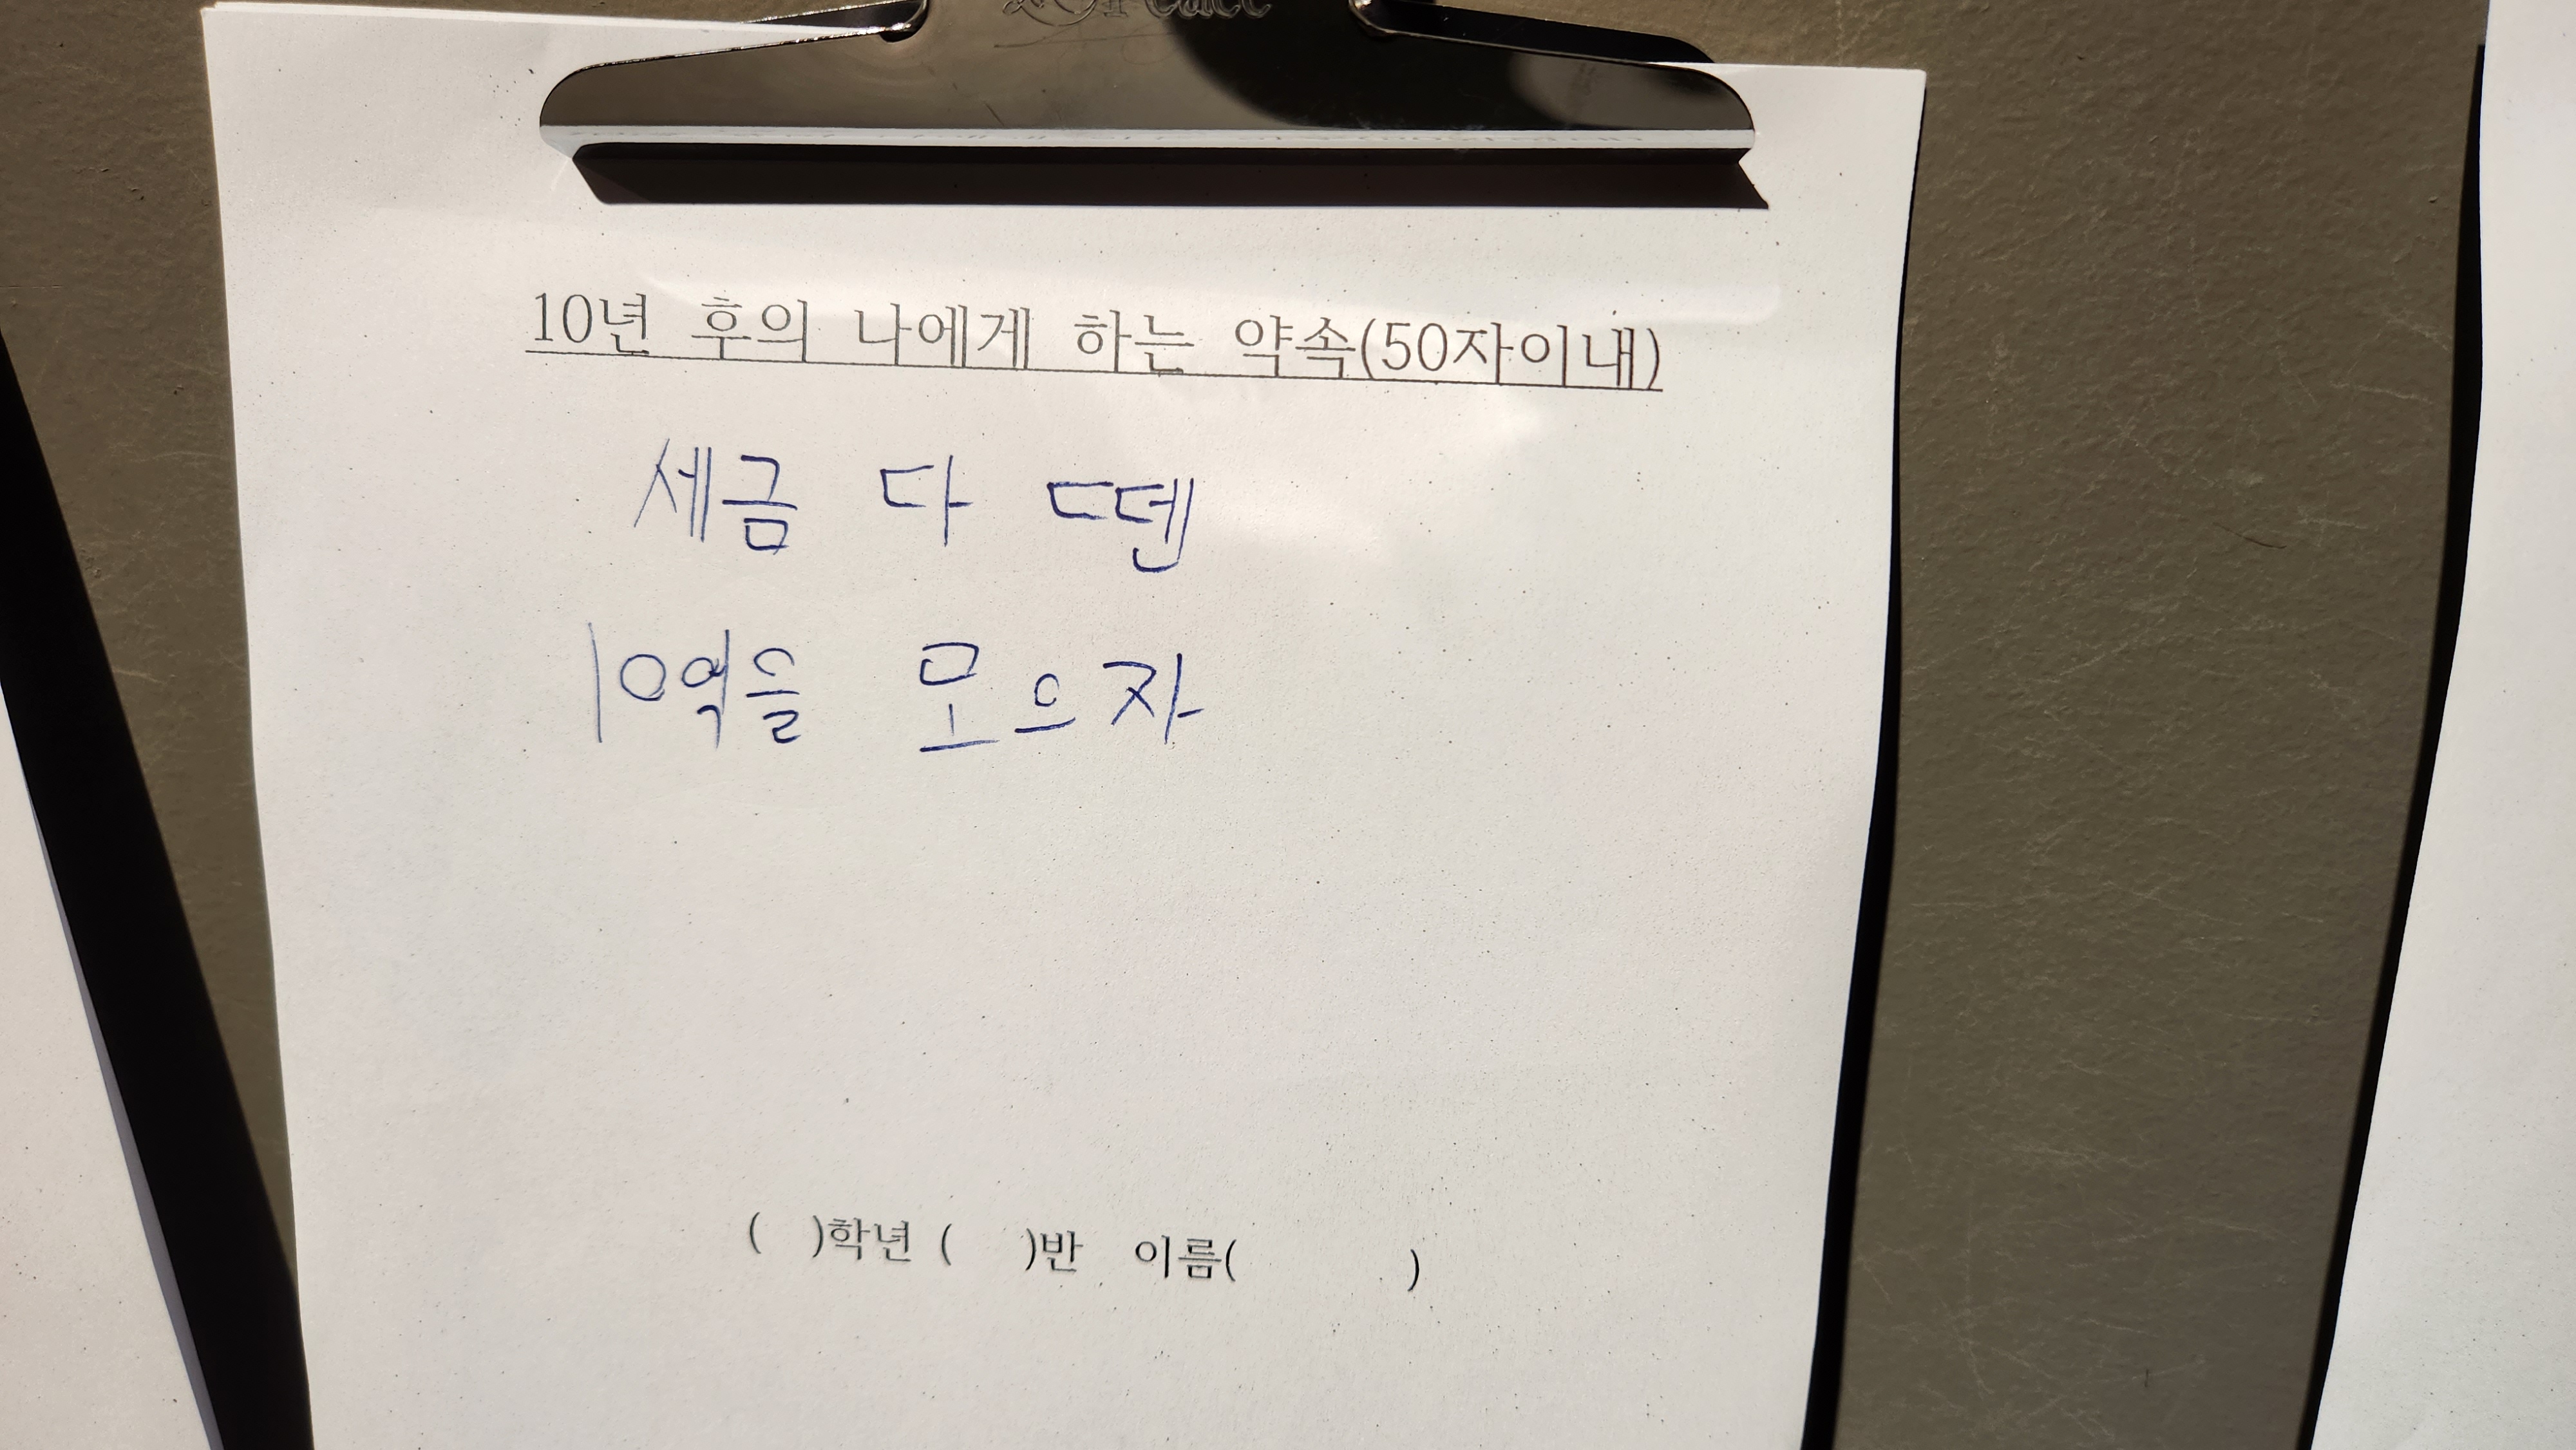 10년 후의 나에게 하는 약속(50자이내)
세금 다 뗀
10억을 모으자
( )학년 ( )반 이름( )